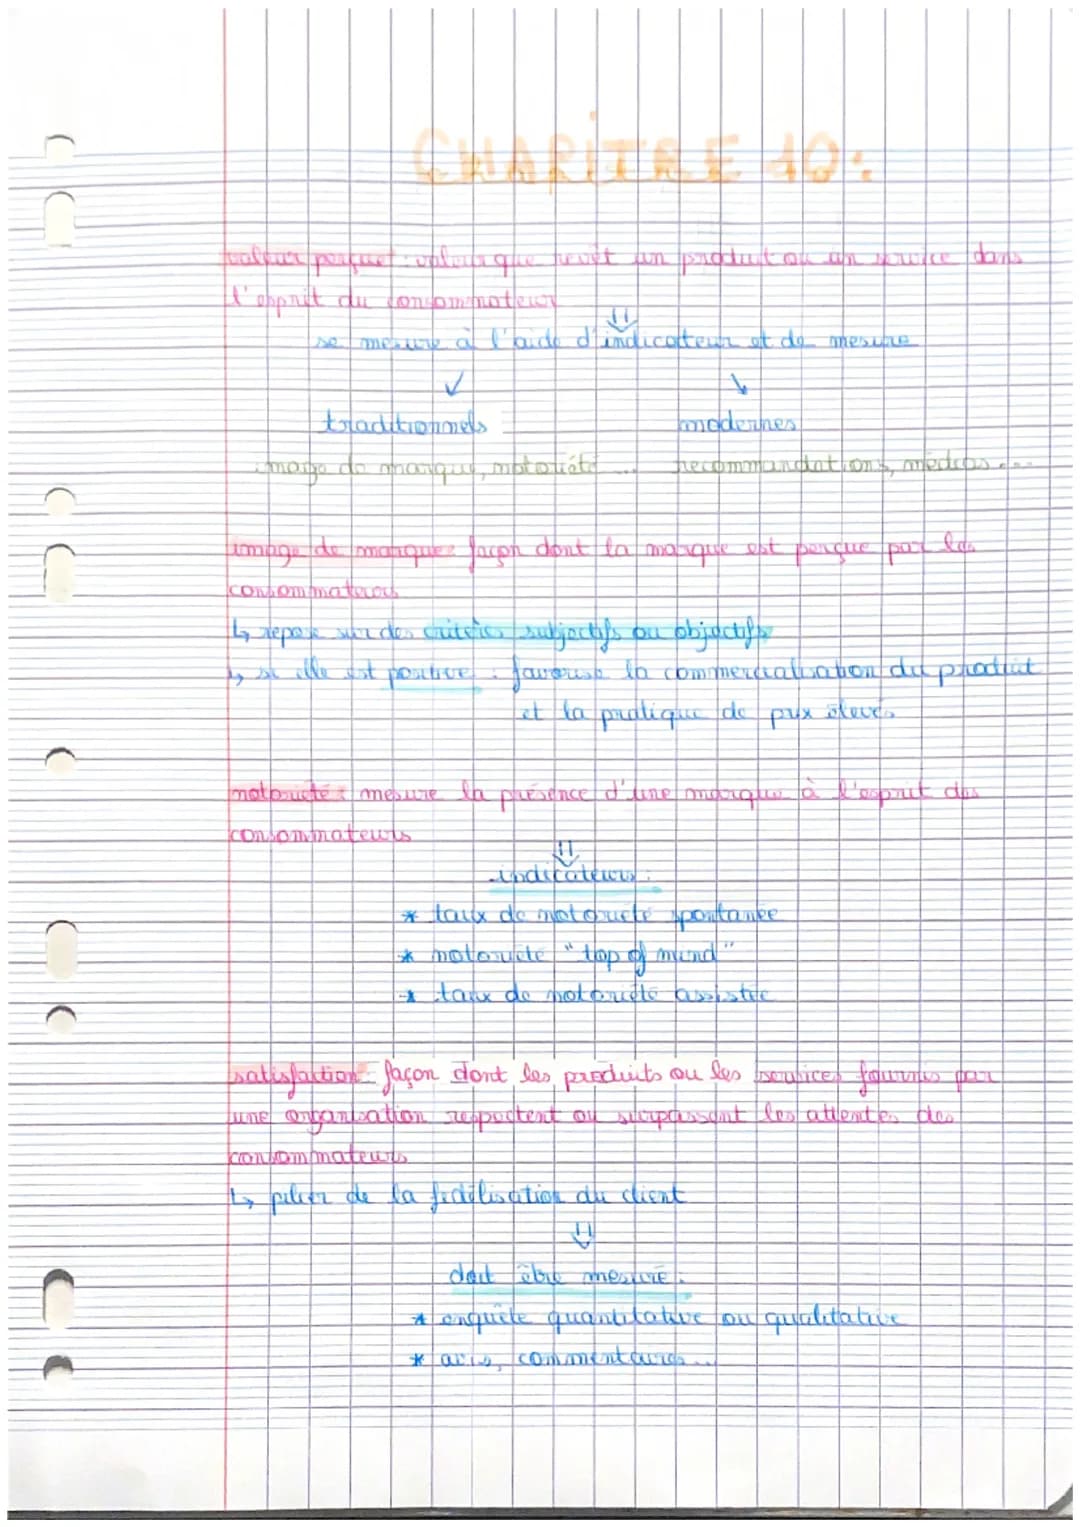 CHAPITRE 10:
valeur perçue : valeur que revêt un produit ou un service dans
l'esprit du consommateur
se mesure à l'aide d'indicateur et de mesure
traditionnels modernes
image de marque, notoriété ... recommandations, médias ...
image de marque: façon dont la marque est perçue par les
consommateurs
↳ repose sur des critères subjectifs ou objectifs
↳ si elle est positive : favorise la commercialisation du produit
et la pratique de prix élevés.
notoriété : mesure la présence d'une marque à l'esprit des
consommateurs
indicateurs :
* taux de notoriété spontanée
* notoriété "top of mind"
* taux de notoriété assistée
satisfaction: façon dont les produits ou les services fournis par
une organisation respectent ou surpassent les attentes des
consommateurs
↳ pilier de la fidélisation du client
doit être mesuré :
* enquête quantitative ou qualitative
* avis, commentaires ...